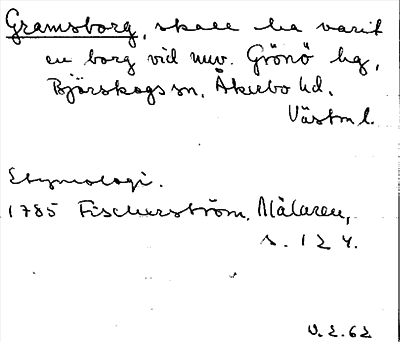 Gramsborg, skall ha varit
en borg vid nuv. Grönö hg,
Björskogs sn, Åkerbo hd.
Västm l.
Etymologi.
1785 Fischerström, Mälaren,
s. 124.
V.E.62